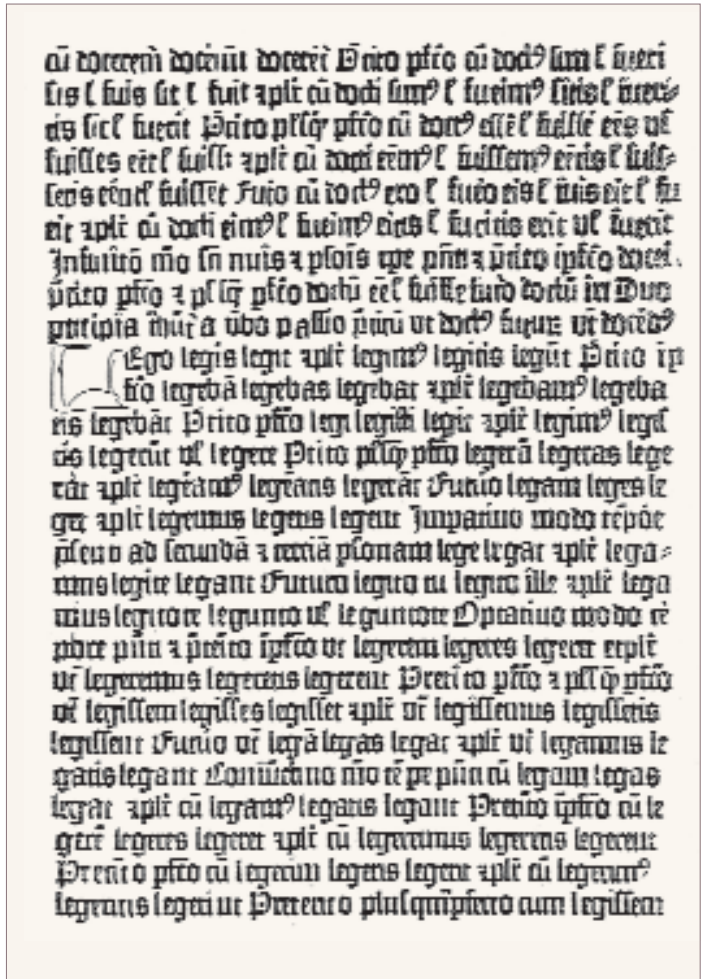 cū docerem docuiſti docerēt P̄rito pſco cū doct⁹ ſum ł fueri
ſis ł fu̅is ſit ł fuit ⁊plr̄ cū docti ſum⁹ ł fueim⁹ ſitis ł fueri⸗
tis ſit ł fuerit P̄rito pſſꝙ pſco cū doct⁹ eſſē ł fuiſſē eēs vł
fuiſſes eēt ł fuiſſ: ⁊plr̄ cū docti eēm⁹ ł fuiſſem⁹ eētis ł fuiſ⸗
ſetis eēnt ł fuiſſēt Fuṫo cū doct⁹ ero ł fuero eis ł fu̅is eit ł fu
eit ⁊plr̄ cū docti eim⁹ ł fueim⁹ eitis ł fueritis erit vł fuerīt
Infinitō mō ſn̄ nuīs ⁊ pſōis tp̄e pn̄ti ⁊ p̄rito ipſco docei.
p̄rito pſco ⁊ pſ ſꝙ pſco doctū eē ł fuiſſe futō doctū iri Duo
pticipia
Ego legis legit ⁊plr̄ legim⁹ legitis legūt P̄rito īp
fco legebā legebas legebat ⁊plr̄ legebam⁹ legeba
tis legebāt P̄rito pſco legi legiſti legit ⁊plr̄ legim⁹ legiſ
tis legerūt vł legere P̄rito pſſꝙ pſco legerā legeras lege
rāt ⁊plr̄ legeam⁹ legeatis legerāt Futuo legam leges le
get ⁊plr̄ legemus legetis legent Imparino modo tēpōe
pſento ad ſecundā ⁊ terciā pſonam lege legat ⁊plr̄ lega⸗
mus legite legant Futuro legito tu legito ille ⁊plr̄ lega
mus legitote legunto vł leguntote Optatiuo modo tē
pore pn̄ti ⁊ p̄rito īpſco vt legerem legeres legeret etplr̄
vt legeremus legeretis legerent Preri to pſco ⁊ pſſ ꝙ pſco
vt legiſſem legiſſes legiſſet ⁊plr̄ vt legiſſemus legiſſetis
legiſſent Futuo vt legā legas legat ⁊plr̄ vt legamus le
gatis legant Coniūctiuo mō tē pe pn̄ti cū legam legas
legat ⁊plr̄ cū legam⁹ legatis legant Preriro īpſco cū le
gerē legeres legeret ⁊plr̄ cū legeremus legeretis legerent
Prerit o pſco cū legerim legeris legerit ⁊plr̄ cū legerim⁹
legeritis legeri nt Preterit o pluſqm̄pferto cum legiſſem